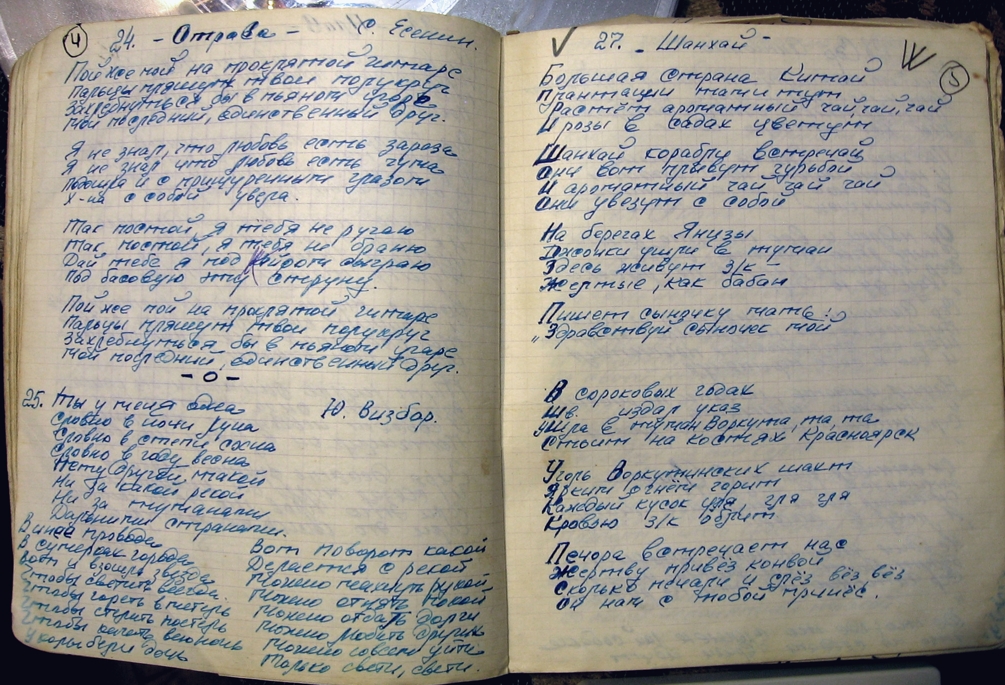 4
24. - Отрава - С. Есенин.
Пой же пой на проклятой гитаре
Пальцы пляшут твои полукруг
Захлебнуться бы в пьяном угаре
Мой последний, единственный друг.
Я не знал, что любовь есть зараза
Я не знал что любовь есть чума
и с прищуренным глазом
Х-на с собой увела.
Так постой, я тебя не ругаю
Так, постой, я тебя не браню
Дай тебе я под сыграю
Под басовую эту струну.
Пой же пой на проклятой гитаре
Пальцы пляшут твои полукруг
Захлебнуться бы в пьяном угаре
Мой последний, единственный друг.
-о-
25. Ты у меня одна Ю. Визбор.
Словно в ночи луна
Словно в степи сосна
Словно в году весна
Нету другой такой
Ни за какой рекой
Ни за туманами
Дальними странами.
В инее провода
В сумерках города
Вот и взошла звезда
Чтобы светить всегда.
Чтобы гореть в метель
Чтобы стелить постель
Чтобы качать всю ночь
У колыбели дочь
Вот поворот какой
Делается с рекой
Можно махнуть рукой
Можно отнять покой
Можно отдать долги
Можно любить других
Можно совсем уйти
Только свети, свети.
27. "Шанхай"
5
Большая страна Китай
Плантации там и тут
Растёт ароматный чай, чай, чай
И розы в садах цветут
Шанхай корабли встречай
Они вот плывут гурьбой
И ароматный чай чай чай
Они увезут с собой
На берегах Янцзы
Джонки ушли в туман
Здесь живут З/К
Желтые, как бабан
Пишет сыночку мать:
„Здравствуй сыночек мой
В сороковых годах
Шв. издал указ
в тундр Воркута, та, та
Стоит на костях Красноярск
Уголь Воркутинских шахт
Ярким огнём горит
Каждый кусок угля, гля гля
Кровью З/К облит
Печора встречает нас
Жертву привёз конвой
Сколько печали и слёз вёз вёз
Он нам с тобой принёс.